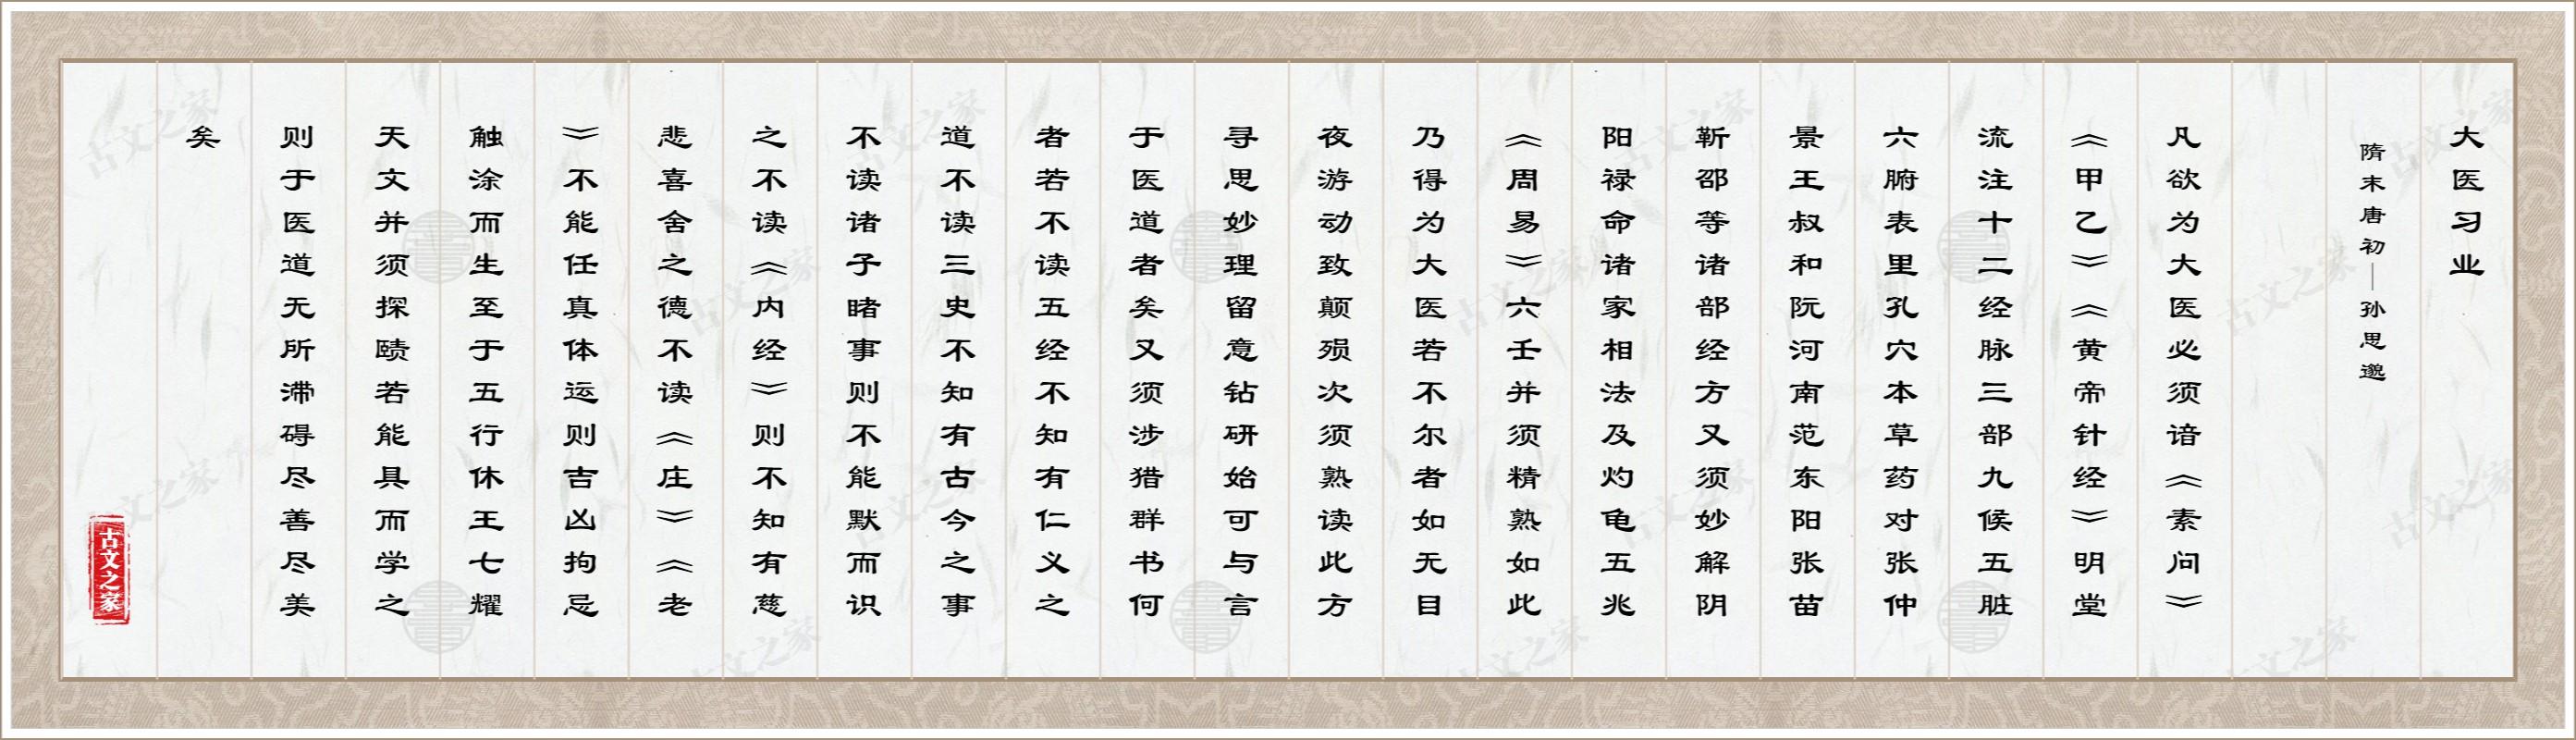 大医习业
隋末唐初｜孙思邈
凡欲为大医必须谙《素问》
《甲乙》《黄帝针经》明堂
流注十二经脉三部九候五脏
六腑表里孔穴本草药对张仲
景王叔和阮河南范东阳张苗
靳邵等诸部经方又须妙解阴
阳禄命诸家相法及灼龟五兆
《周易》六壬并须精熟如此
乃得为大医若不尔者如无目
夜游动致颠殒次须熟读此方
寻思妙理留意钻研始可与言
于医道者矣又须涉猎群书何
者若不读五经不知有仁义之
道不读三史不知有古今之事
不读诸子睹事则不能默而识
之不读《内经》则不知有慈
悲喜舍之德不读《庄》《老
》不能任真体运则吉凶拘忌
触涂而生至于五行休王七耀
天文并须探赜若能具而学之
则于医道无所滞碍尽善尽美
矣
古文之家